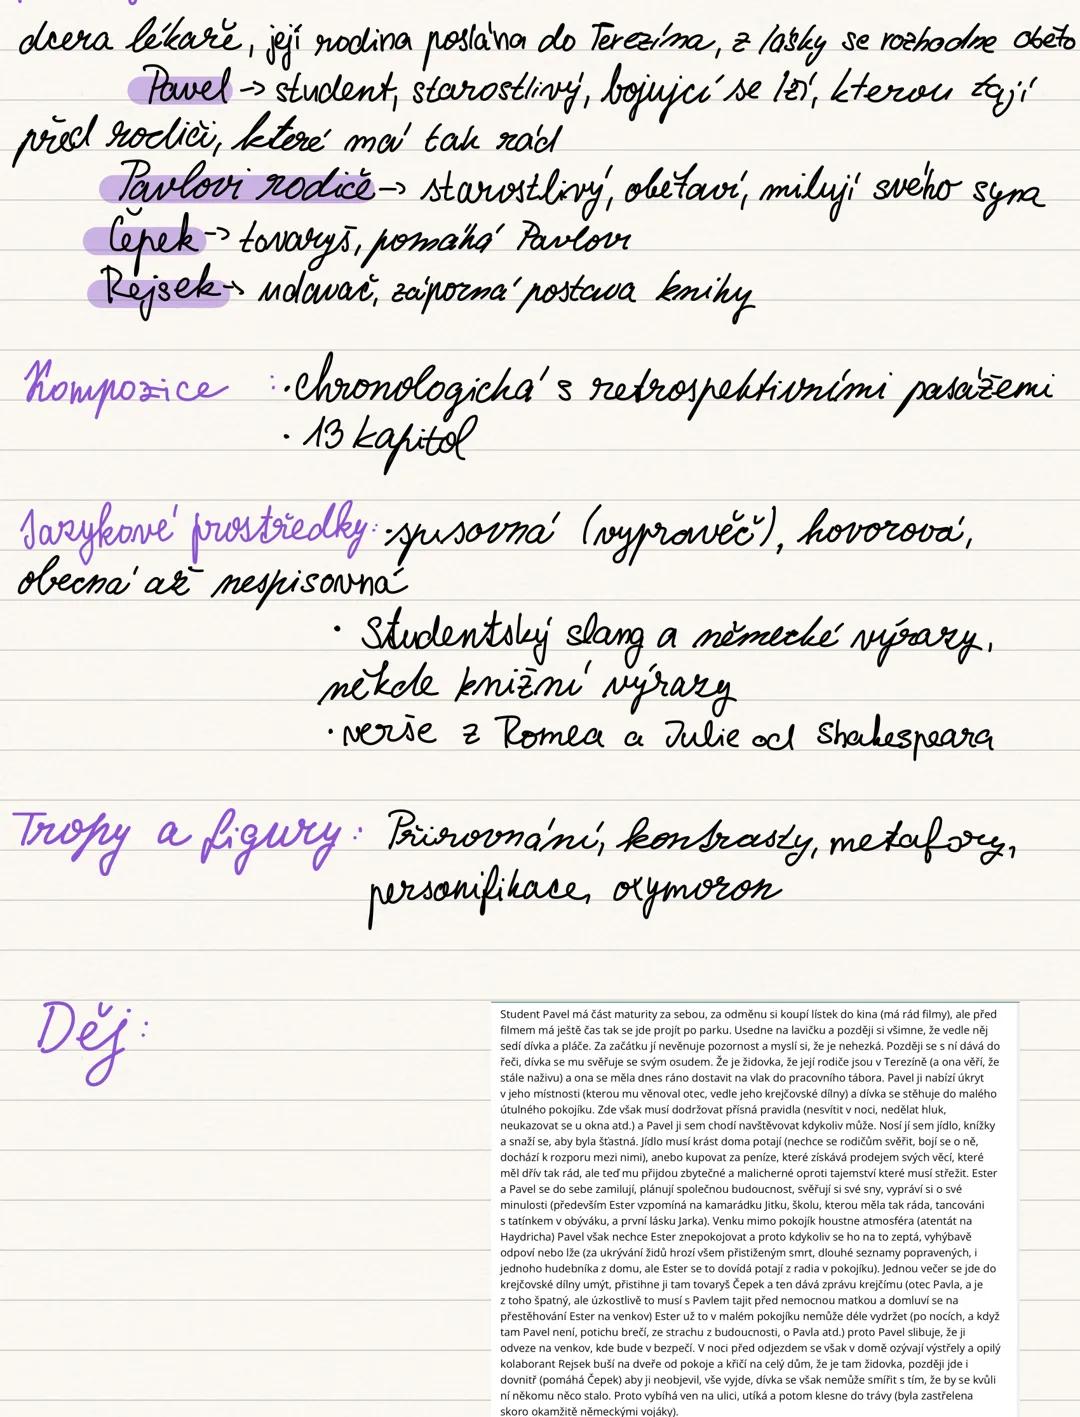 dcera lékaře, její rodina poslána do Terezína, z lásky se rozhodne oběto
Pavel -> student, starostlivý, bojující se lží, kterou tají
před rodiči, které má tak rád
Pavlovi rodiče -> starostlivý, obětaví, milují svého syna
Čepek -> tovaryš, pomáhá Pavlovi
Rejsek -> udavač, záporná postava knihy
Kompozice : · chronologická s retrospektivními pasážemi
· 13 kapitol
Jazykové prostředky: · spisovná (vypravěč), hovorová,
obecná až nespisovná
· Studentský slang a německé výrazy,
někde knižní výrazy
· verše z Romea a Julie od Shakespeara
Tropy a figury: Přirovnání, kontrasty, metafory,
personifikace, oxymoron
Děj:
Student Pavel má část maturity za sebou, za odměnu si koupí lístek do kina (má rád filmy), ale před
filmem má ještě čas tak se jde projít po parku. Usedne na lavičku a později si všimne, že vedle něj
sedí dívka a pláče. Za začátku jí nevěnuje pozornost a myslí si, že je nehezká. Později se s ní dává do
řeči, dívka se mu svěřuje se svým osudem. Že je židovka, že její rodiče jsou v Terezíně (a ona věří, že
stále naživu) a ona se měla dnes ráno dostavit na vlak do pracovního tábora. Pavel ji nabízí úkryt
v jeho místnosti (kterou mu věnoval otec, vedle jeho krejčovské dílny) a dívka se stěhuje do malého
útulného pokojíku. Zde však musí dodržovat přísná pravidla (nesvítit v noci, nedělat hluk,
neukazovat se u okna atd.) a Pavel ji sem chodí navštěvovat kdykoliv může. Nosí jí sem jídlo, knížky
a snaží se, aby byla šťastná. Jídlo musí krást doma potají (nechce se rodičům svěřit, bojí se o ně,
dochází k rozporu mezi nimi), anebo kupovat za peníze, které získává prodejem svých věcí, které
měl dřív tak rád, ale teď mu přijdou zbytečné a malicherné oproti tajemství které musí střežit. Ester
a Pavel se do sebe zamilují, plánují společnou budoucnost, svěřují si své sny, vypráví si o své
minulosti (především Ester vzpomíná na kamarádku Jitku, školu, kterou měla tak ráda, tancováni
s tatínkem v obýváku, a první lásku Jarka). Venku mimo pokojík houstne atmosféra (atentát na
Haydricha) Pavel však nechce Ester znepokojovat a proto kdykoliv se ho na to zeptá, vyhýbavě
odpoví nebo lže (za ukrývání židů hrozí všem přistiženým smrt, dlouhé seznamy popravených, i
jednoho hudebníka z domu, ale Ester se to dovídá potají z radia v pokojíku). Jednou večer se jde do
krejčovské dílny umýt, přistihne ji tam tovaryš Čepek a ten dává zprávu krejčímu (otec Pavla, a je
z toho špatný, ale úzkostlivě to musí s Pavlem tajit před nemocnou matkou a domluví se na
přestěhování Ester na venkov) Ester už to v malém pokojíku nemůže déle vydržet (po nocích, a když
tam Pavel není, potichu brečí, ze strachu z budoucnosti, o Pavla atd.) proto Pavel slibuje, že ji
odveze na venkov, kde bude v bezpečí. V noci před odjezdem se však v domě ozývají výstřely a opilý
kolaborant Rejsek buší na dveře od pokoje a křičí na celý dům, že je tam židovka, později jde i
dovnitř (pomáhá Čepek) aby ji neobjevil, vše vyjde, dívka se však nemůže smířit s tím, že by se kvůli
ní někomu něco stalo. Proto vybíhá ven na ulici, utíká a potom klesne do trávy (byla zastřelena
skoro okamžitě německými vojáky).